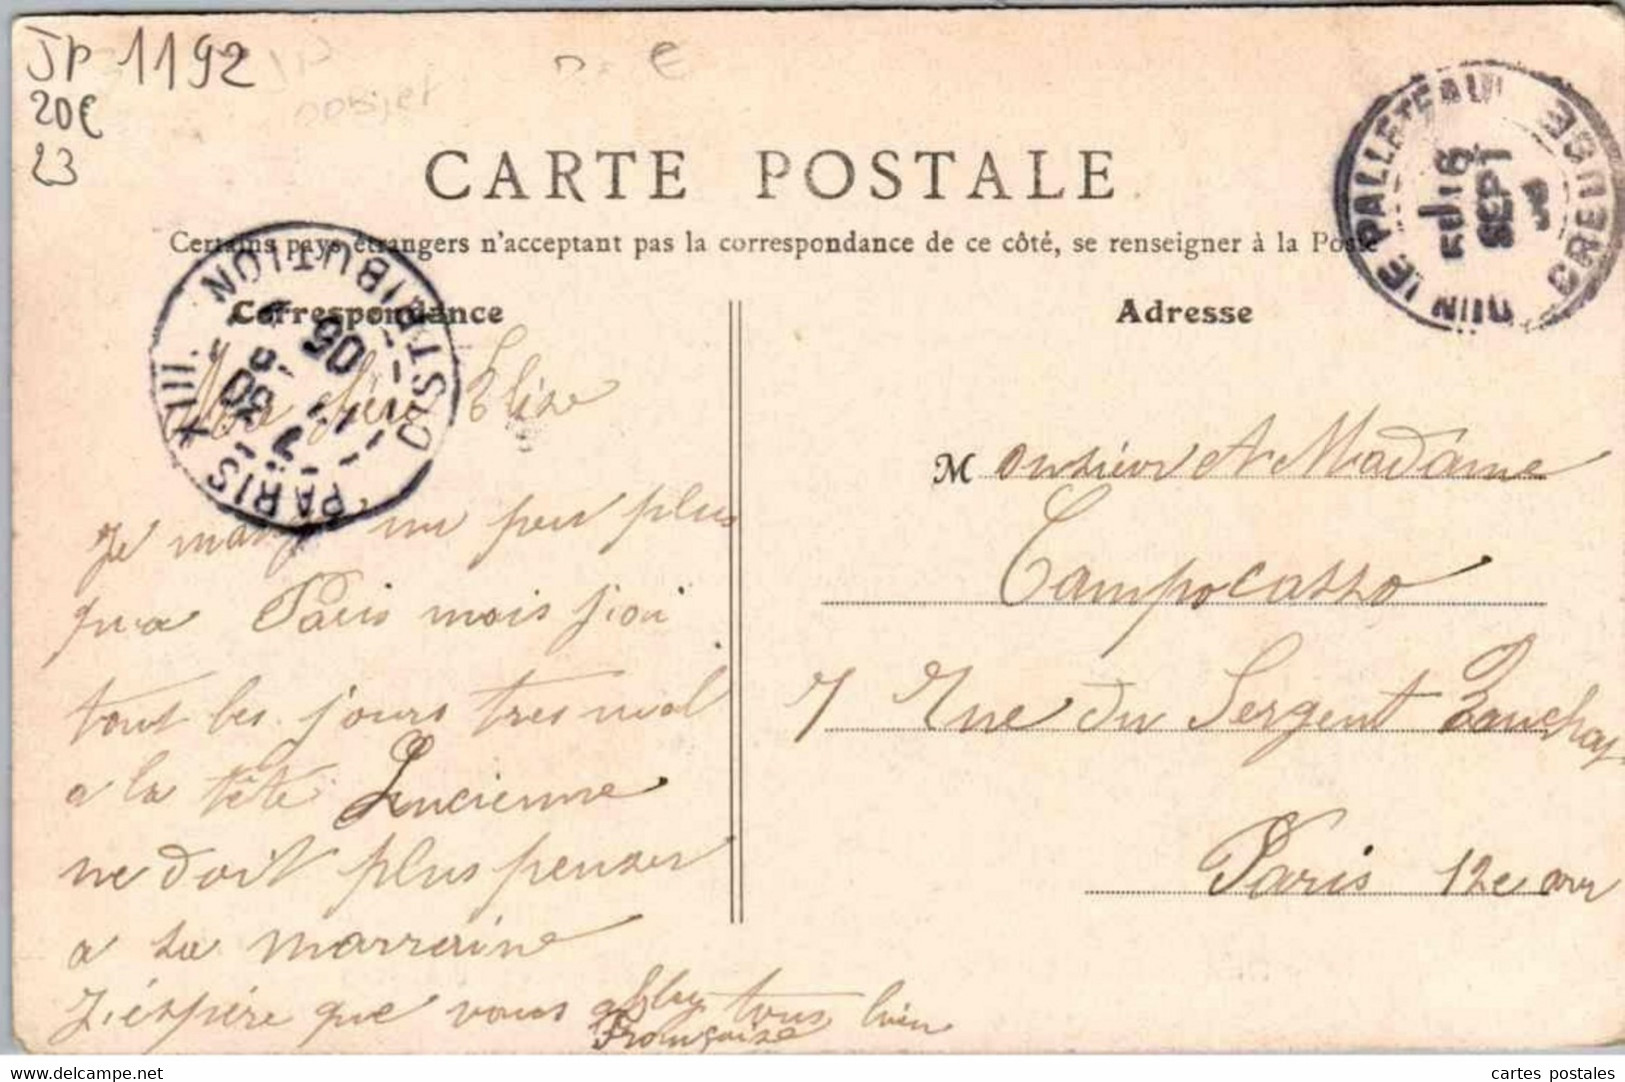 JP 1192
20€
23
CARTE POSTALE
Certains pays étrangers n'acceptant pas la correspondance de ce côté, se renseigner à la Poste
Correspondance
Adresse
DUN LE PALLETEAU CREUSE
16
SEPT
05
PARIS XIII. DISTRIBUTION
30
05
Ma chère Elise
Je mange un peu plus
qu'a Paris mais j'ai
tout les jours tres mal
a la tête Lucienne
ne doit plus penser
a sa marraine
J'éspére que vous allez tous bien
Françoise
Monsieur et Madame
Campocasso
7 Rue du Sergent Bauchat
Paris 12e arr
www.delcampe.net
cartes postales